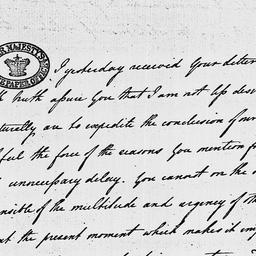 R MAJESTY'S
E PAPER OF
I yesterday received your letter
th truth assure you that I am not less des
turally are to expedite the conclusion of our
ful the force of the reasons you mention fo
unnecessary delay. You cannot on the o
ensible of the multitude and urgency of th
at the present moment which makes it imp